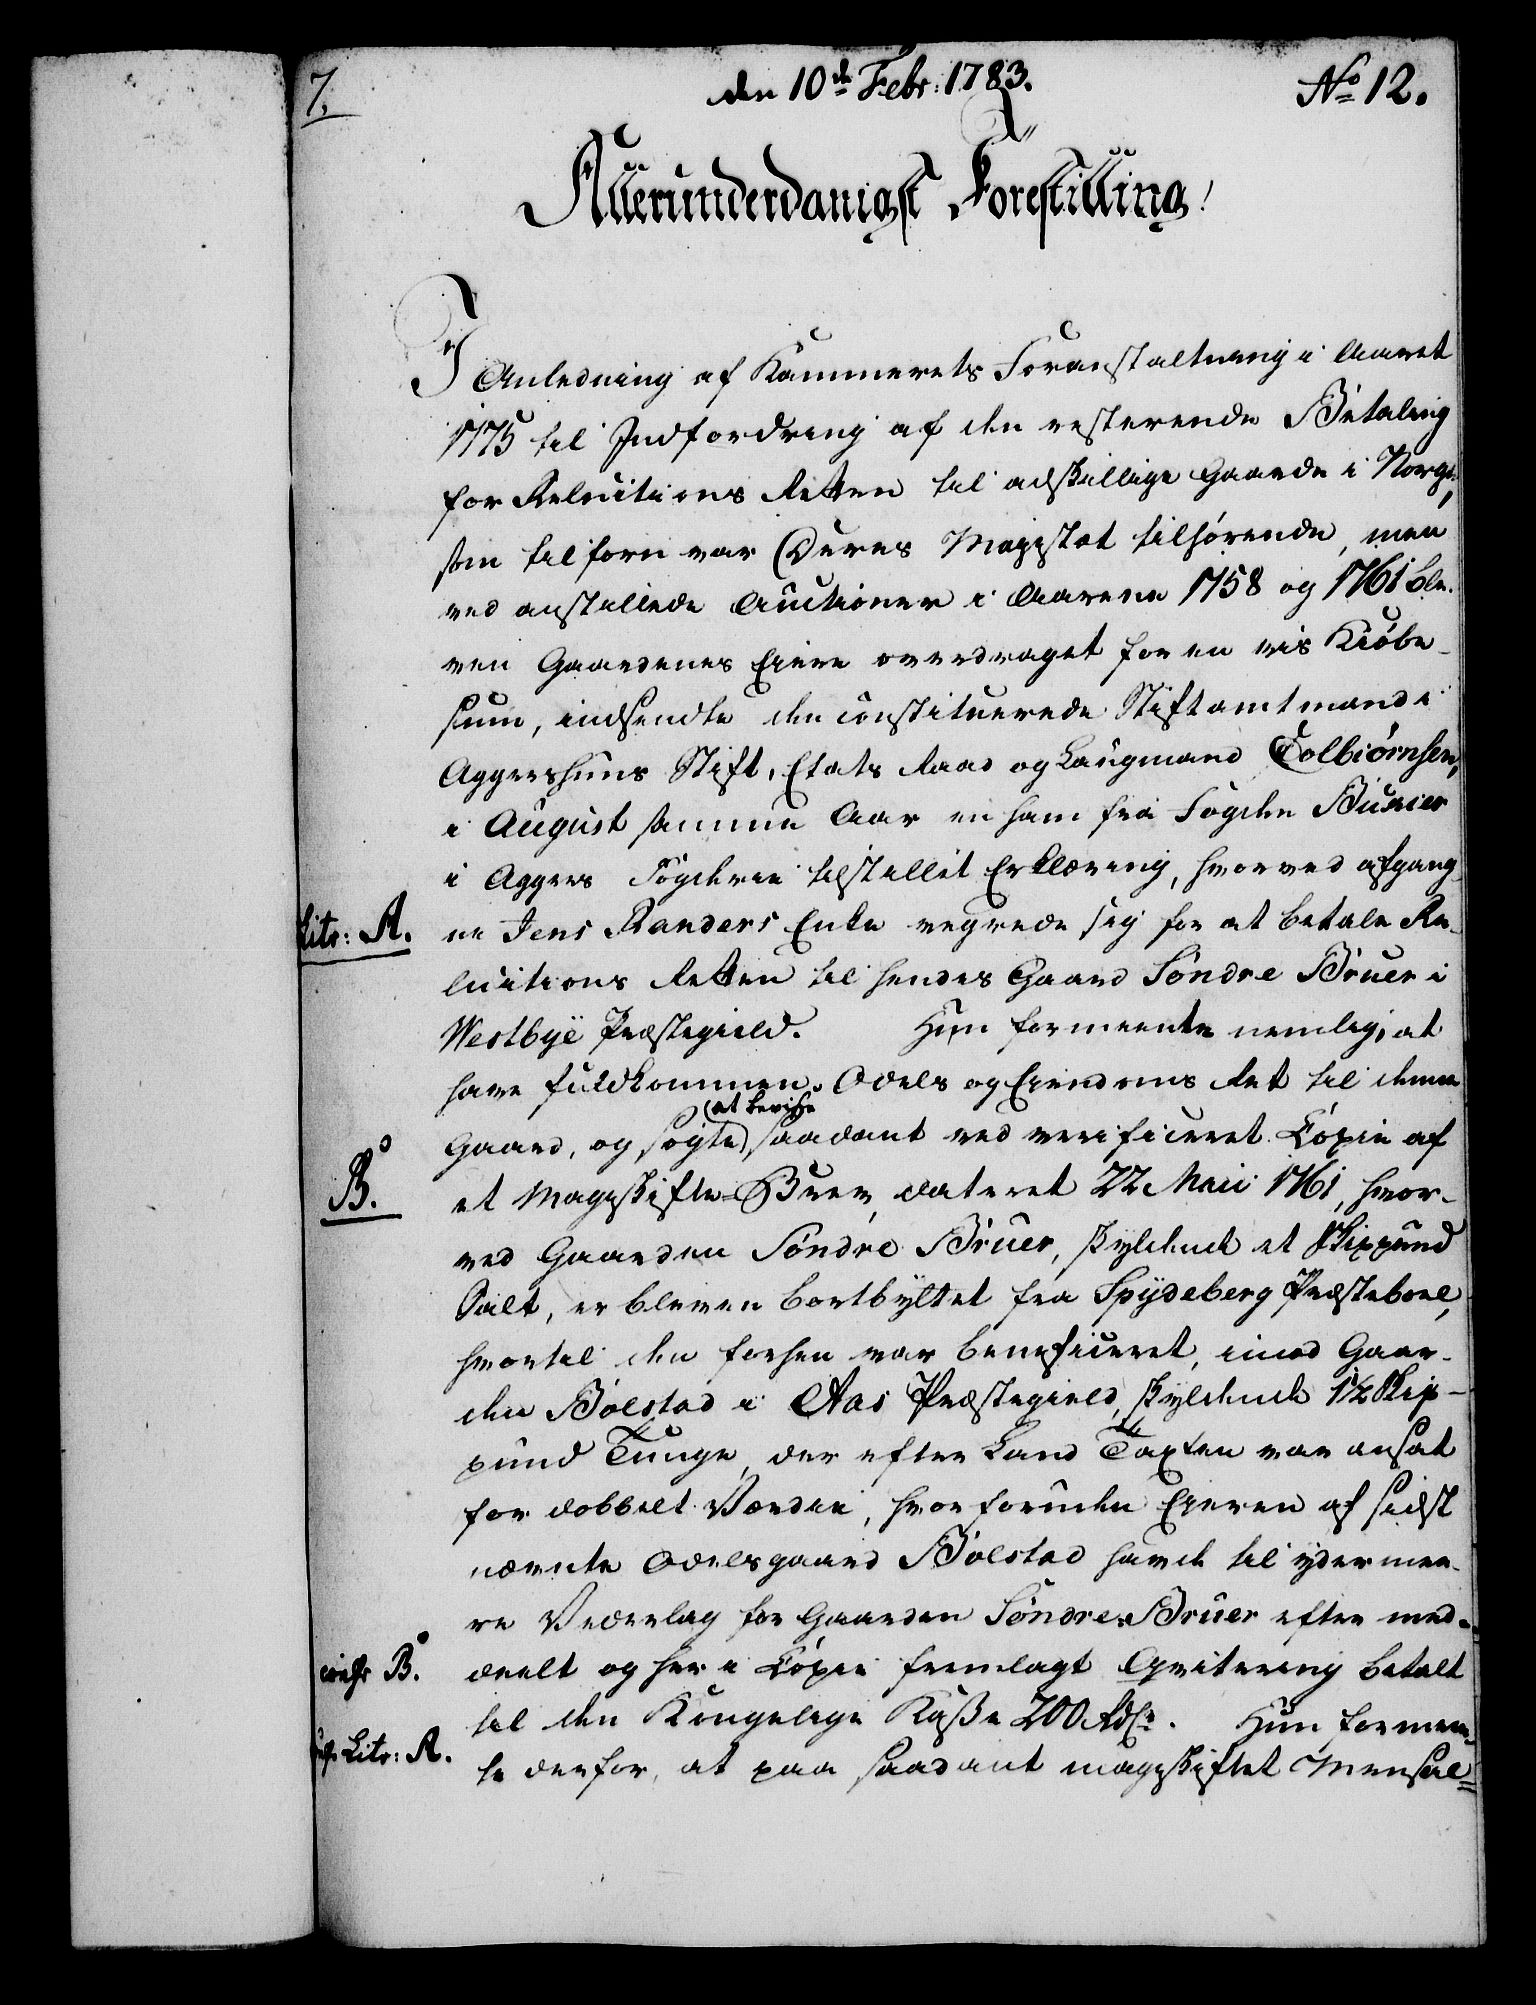 7.
den 10de Febr: 1783.
No 12.
Allerunderdanigst Forestilling!
I Anledning af Kammerets Foranstaltning i Aaret
1775 til Indfordring af den resterende Betaling
for Reluitions Retten til adskillige Gaarde i Norge,
som tilforn var Deres Majestæt tilhørende, men
ved anstillede Auctioner i Aarene 1758 og 1761 ble-
ven Gaardenes Eiere overdraget for en vis Kiøbe-
sum, indsendte den constituerede Stiftamtmand i
Aggershuus Stift, Etats Raad og Laugmand Colbiørnsen,
i August samme Aar en ham fra Fogden
i Aggers Fogderie tilstillet Erklæring, hvorved afgang-
Litr: A.
ne Jens Randers Enke vegrede sig for at betale Re-
luitions Retten til hendes Gaard Søndre Bruer i
Westbye Præstegield. Hun formeente nemlig, at
have fuldkommen Odels og Eiendoms Ret til denne
(at bevise
Gaard, og søgte) saadant ved verificeret Copie af
B.
et Mageskifte-Brev, dateret 22 Maii 1761, hvor-
ved Gaarden Søndre Bruer, skyldende et Skippund
Salt, er bleven bortbyttet fra Spydeberg Præsteboel,
hvortil den forhen var beneficeret, imod Gaar-
den Bølstad i Aas Præstegield, skyldende 1½ Skip-
pund Tunge, der efter Land Taxten var ansat
for dobbelt Værdie, hvorforuden Eieren af sidst
nævnte Odelsgaard Bølstad havde til ydermee-
re Vederlag for Gaarden Søndre Bruer efter med-
B.
deelt og her i Copie fremlagt Qvitering betalt
til den Kongelige Kasse 200 Rdlr. Hun formeen-
Litr: A.
te derfor, at paa saadant mageskiftet Mensal=